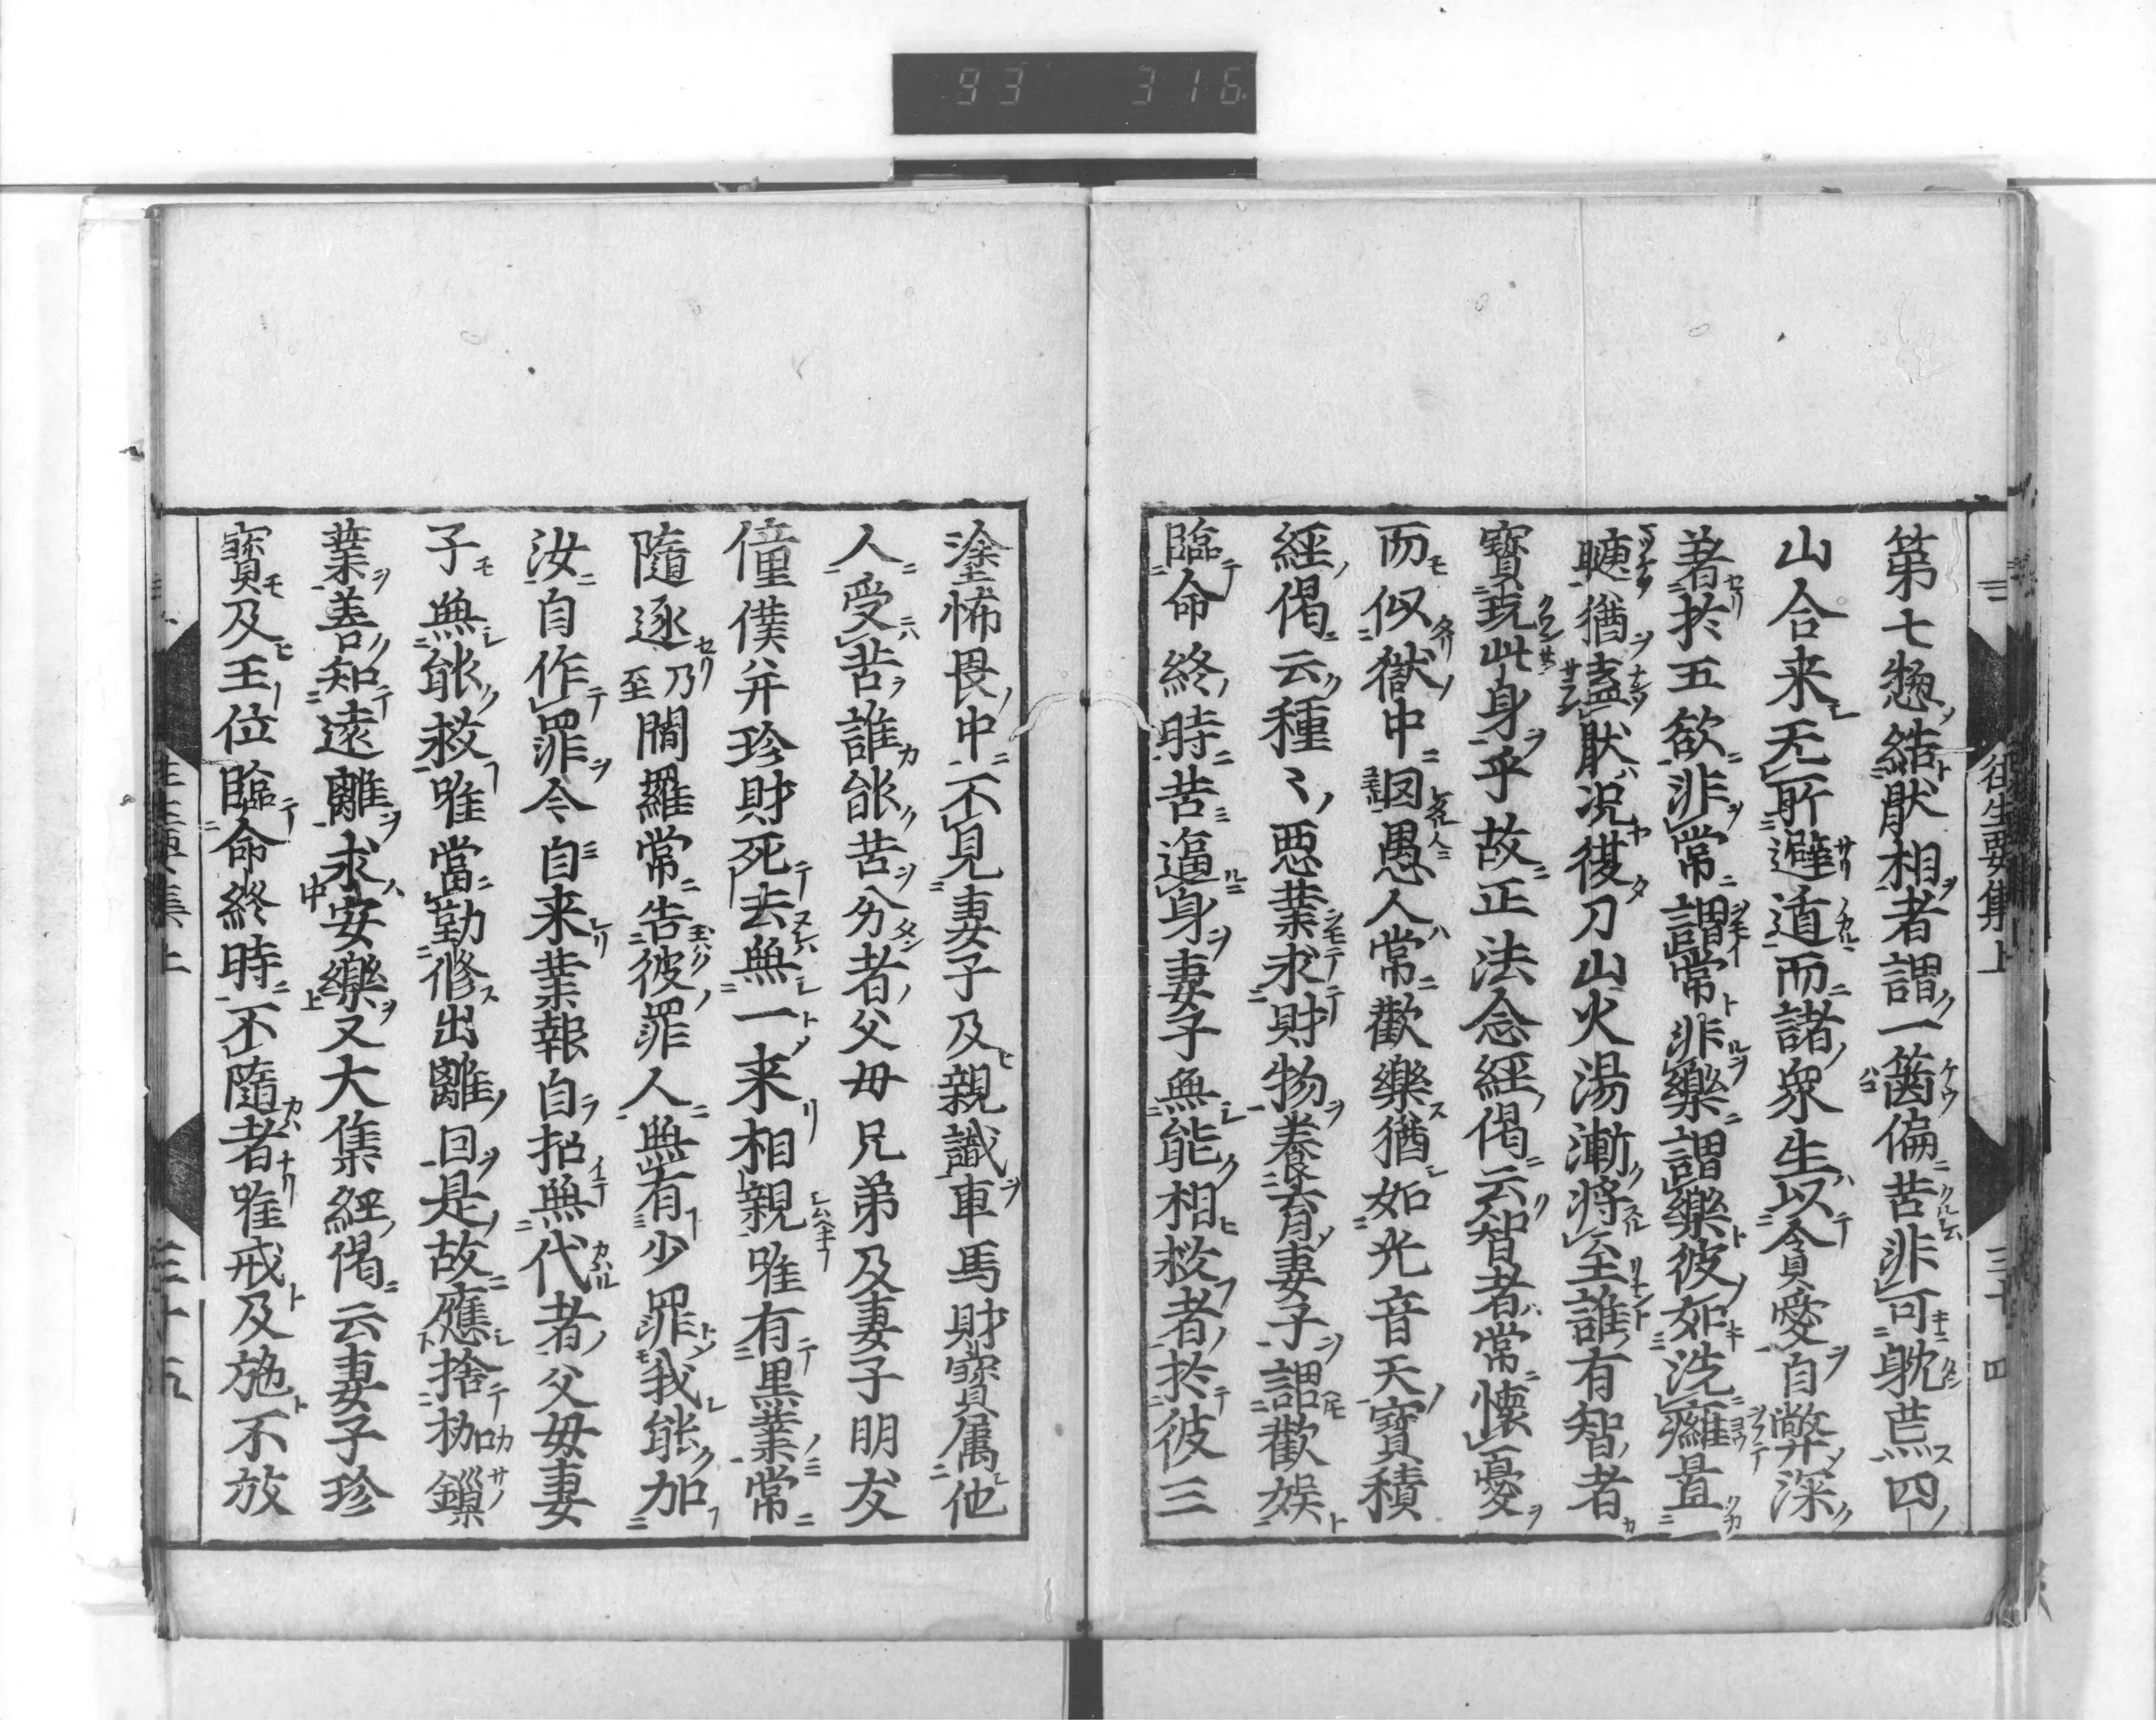 93 316
往生要集上 三十四
第七惣結猒相者謂一篋偏苦非可耽荒四
山合来无所避遁而諸衆生以貪愛自弊深
著於五欲非常謂常非樂謂樂彼如洗癰置
睫猶盍猒況復刀山火湯漸將至誰有智者
寶玩此身乎故正法念經偈云智者常懷憂
而似獄中囚愚人常歡樂猶如光音天寶積
經偈云種〻悪業求財物養育妻子謂歡娯
臨命終時苦逼身妻子無能相救者於彼三
塗怖畏中不見妻子及親識車馬財寶属他
人受苦誰能苦分者父毋兄弟及妻子朋友
僮僕并珍財死去無一来相親唯有黒業常
隨逐乃至閻羅常告彼罪人無有少罪我能加
汝自作罪今自来業報自招無代者父毋妻
子無能救唯當勤修出離因是故應捨枷鎖
業善知遠離求安樂又大集經偈云妻子珍
寳及王位臨命終時不隨者唯戒及施不放
往生要集上 三十五